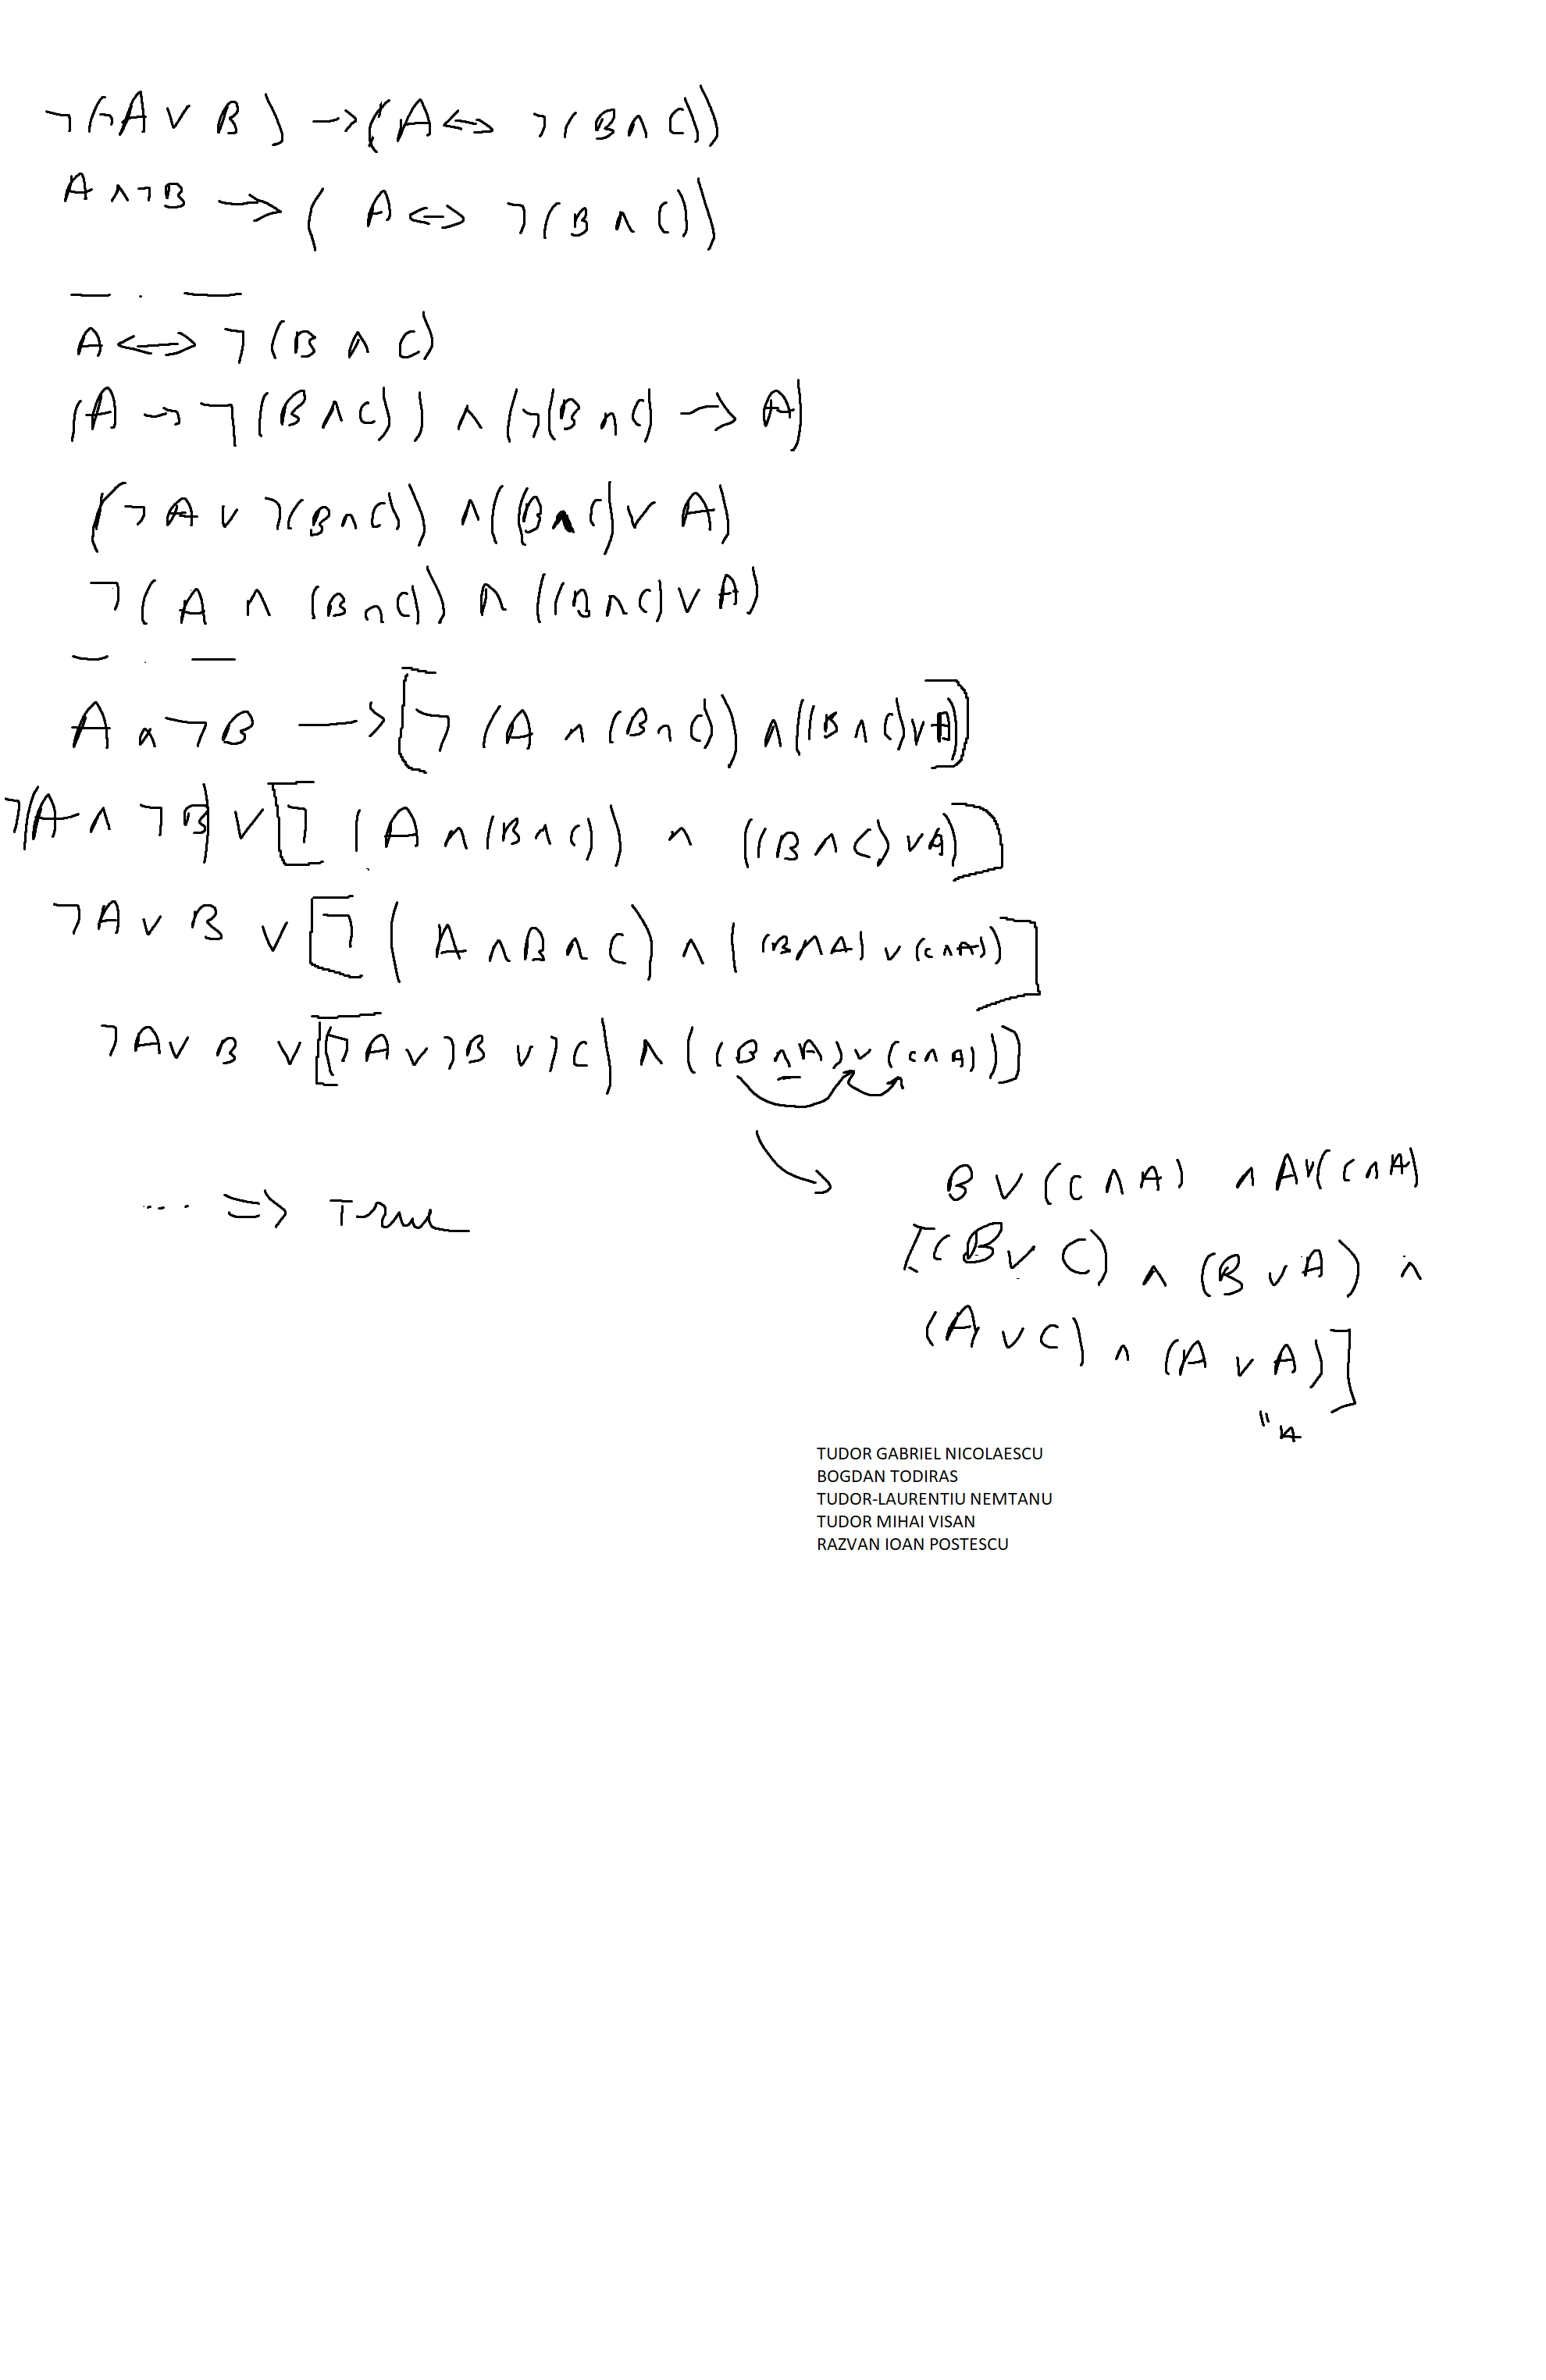 ¬(¬A ∨ B) → (A ↔ ¬(B ∧ C))
A ∧ ¬B → (A ↔ ¬(B ∧ C))
— . —
A ↔ ¬(B ∧ C)
(A → ¬(B ∧ C)) ∧ (¬(B ∧ C) → A)
(¬A ∨ ¬(B ∧ C)) ∧ ((B ∧ C) ∨ A)
¬(A ∧ (B ∧ C)) ∧ ((B ∧ C) ∨ A)
— . —
A ∧ ¬B → [¬(A ∧ (B ∧ C)) ∧ ((B ∧ C) ∨ A)]
¬(A ∧ ¬B) ∨ [¬(A ∧ (B ∧ C)) ∧ ((B ∧ C) ∨ A)]
¬A ∨ B ∨ [¬(A ∧ B ∧ C) ∧ ((B ∧ A) ∨ (C ∧ A))]
¬A ∨ B ∨ [(¬A ∨ ¬B ∨ ¬C) ∧ ((B ∧ A) ∨ (C ∧ A))]
B ∨ (C ∧ A) ∧ A ∨ (C ∧ A)
... ⇒ True
[(B ∨ C) ∧ (B ∨ A) ∧
(A ∨ C) ∧ (A ∨ A)]
" A
TUDOR GABRIEL NICOLAESCU
BOGDAN TODIRAS
TUDOR-LAURENTIU NEMTANU
TUDOR MIHAI VISAN
RAZVAN IOAN POSTESCU